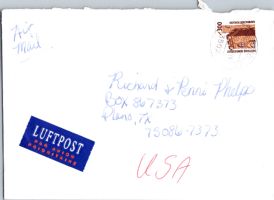 Air
Mail
Richard & Penni Phelps
Box 867373
Plano, TX
75086-7373
USA
LUFTPOST
PAR AVION
PRIORITAIRE